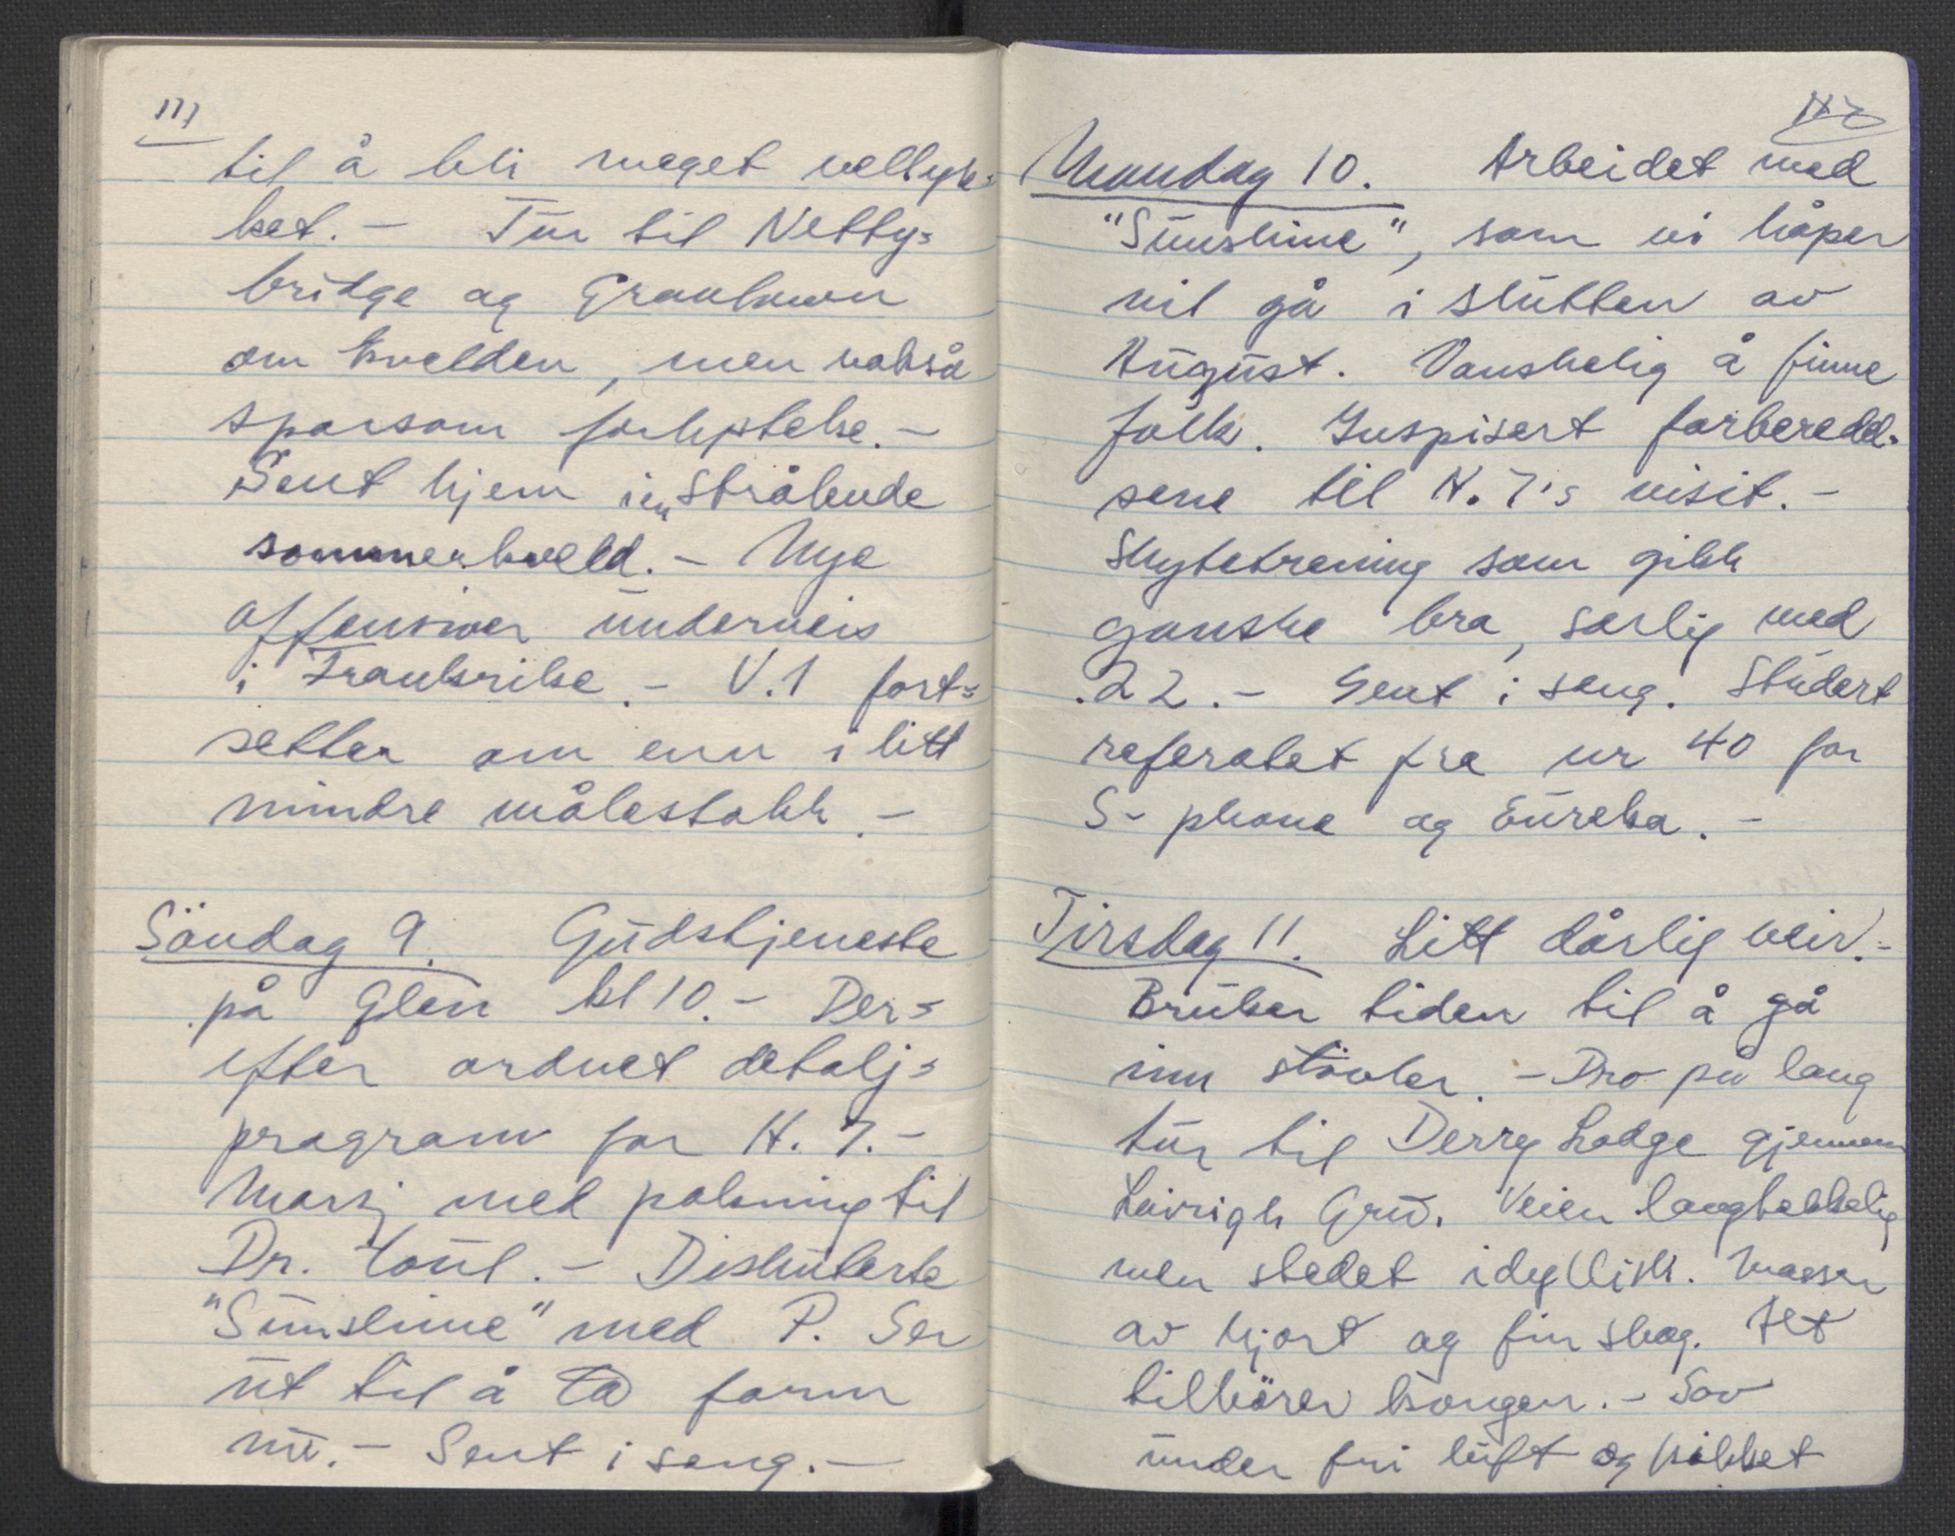 111
til å bli meget vellyk-
ket. - Tur til Nethy-
bridge og Grantown
om kvelden, men også
sparsom forlystelse. -
Sent hjem i en strålende
sommerkveld. - Nye
offensiver underveis
i Frankrike. - V.1 fort-
setter om enn i litt
mindre målestokk. -
Söndag 9. Gudstjeneste
på Glen kl 10. - Der-
efter ordnet detalj-
program for H. 7. -
Marsj med pakning til
Dr. Youl. - Diskuterte
"Sunshine" med P. Ser
ut til å ta form
nu. - Sent i seng. -
112
Mandag 10. Arbeidet med
"Sunshine", som vi håper
vil gå i slutten av
August. Vanskelig å finne
folk. Inspisert forberedel-
sene til H. 7's visit. -
Skytetrening som gikk
ganske bra, særlig med
.22. - Sent i seng. Studert
referatet fra nr 40 for
S-phone og Eureka. -
Tirsdag 11. Litt dårlig veir. -
Bruker tiden til å gå
inn støvler. - Dro på lang
tur til Derry Lodge gjennem
Lairigh Gru. Veien langtekkelig
men stedet idyllisk. Masser
av hjort og fin skog. Alt
tilhörer kongen. - Sov
under fri luft og kikket